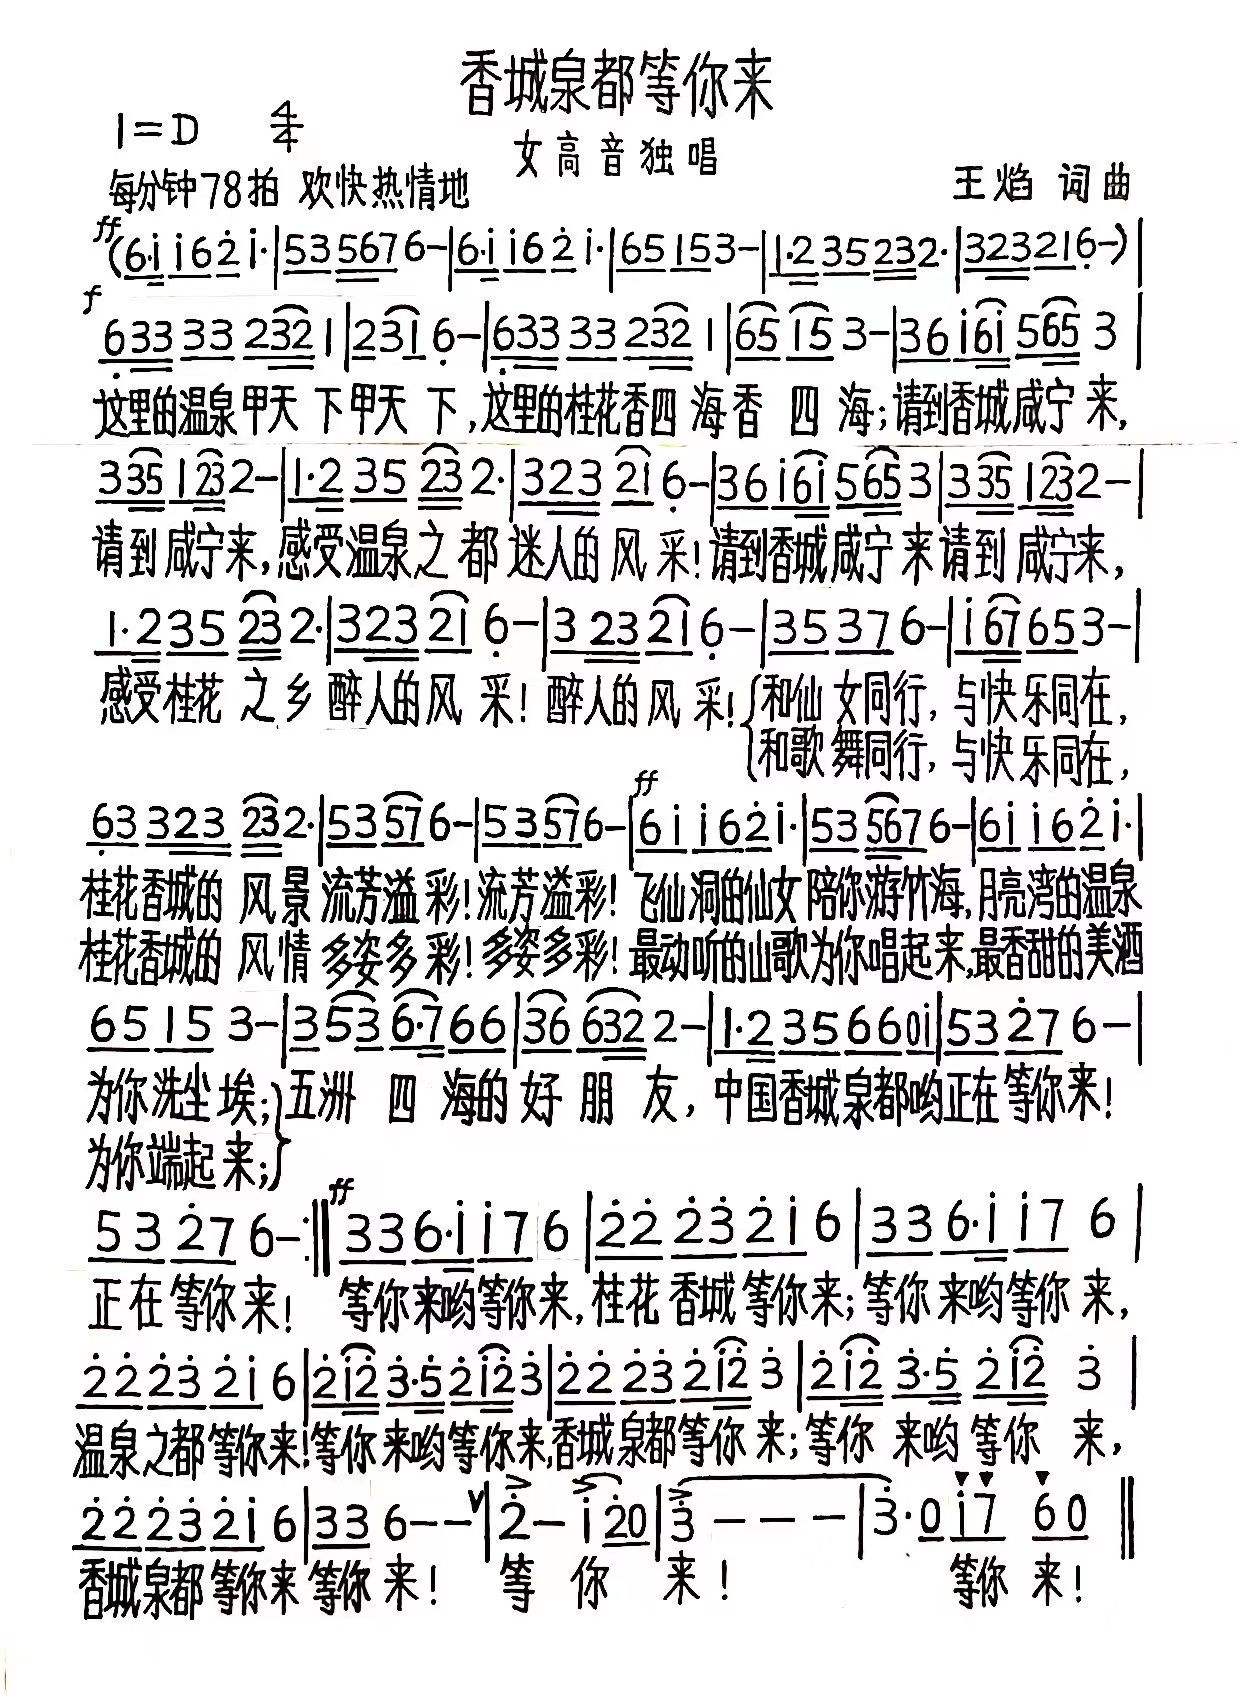 香城泉都等你来
1=D 4/4
女高音独唱
每分钟78拍 欢快热情地
王焰 词曲
ff
(6·i i62 i·|53 5676-|6·i i62 i·|65 153-|1·2 35 232·|323216-)|
f
633 33 232 1|231 6-|633 33 232 1|65 15 3-|36 i6i 565 3|
这里的温泉甲天下甲天下,这里的桂花香四海香四海;请到香城咸宁来,
335 123 2-|1·2 35 23 2·|323 21 6·-|36 i6i 565 3|335 123 2-|
请到咸宁来,感受温泉之都迷人的风采!请到香城咸宁来请到咸宁来,
1·2 35 23 2·|323 21 6-|3 23 21 6-|35 37 6-|i67 65 3-|
感受桂花之乡醉人的风采!醉人的风采!和仙女同行,与快乐同在,
和歌舞同行,与快乐同在,
ff
63 323 23 2·|53 57 6-|53 57 6-|6i i62i·|53 567 6-|6i i62 i·|
桂花香城的风景流芳溢彩!流芳溢彩!飞仙洞的仙女陪你游竹海,月亮湾的温泉
桂花香城的风情多姿多彩!多姿多彩!最动听的山歌为你唱起来,最香甜的美酒
65 15 3-|353 6·7 66|36 632 2-|1·2 35 66 0i|53 27 6-|
为你洗尘埃;五洲四海的好朋友,中国香城泉都哟正在等你来!
为你端起来;
ff
53 27 6-:||33 6·i i7 6|22 23 2i 6|33 6·i i7 6|
正在等你来!等你来哟等你来,桂花香城等你来;等你来哟等你来,
22 23 2i 6|2i2 3·5 2i2 3|22 23 2i2 3|2i2 3·5 2i2 3|
温泉之都等你来!等你来哟等你来,香城泉都等你来;等你来哟等你来,
22 23 2i 6|33 6--∨|2- i 20|3---|3·0 i7 60||
香城泉都等你来等你来!等你来!等你来!